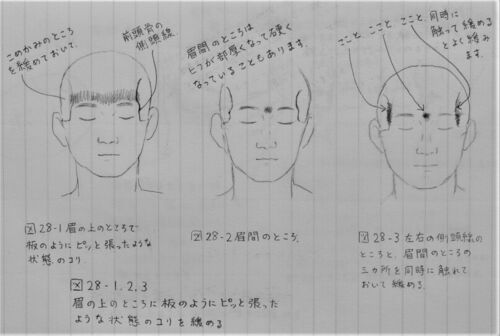 こめかみのところ
を緩めておいて。
前頭骨の
側頭線
眉間のところは
ヒフが部厚くなって硬く
なっていることもあります。
こことここと、ここと、同時に
触って緩める
とよく緩み
ます。
図28-1 眉の上のところで
板のようにピッと張ったような
状態のコリ。
図28-2 眉間のところ。
図28-3 左右の側頭線の
ところと、眉間のところの
三カ所を同時に触れて
おいて緩める。
図28-1.2.3
眉の上のところに板のようにピッと張った
ような状態のコリを緩める